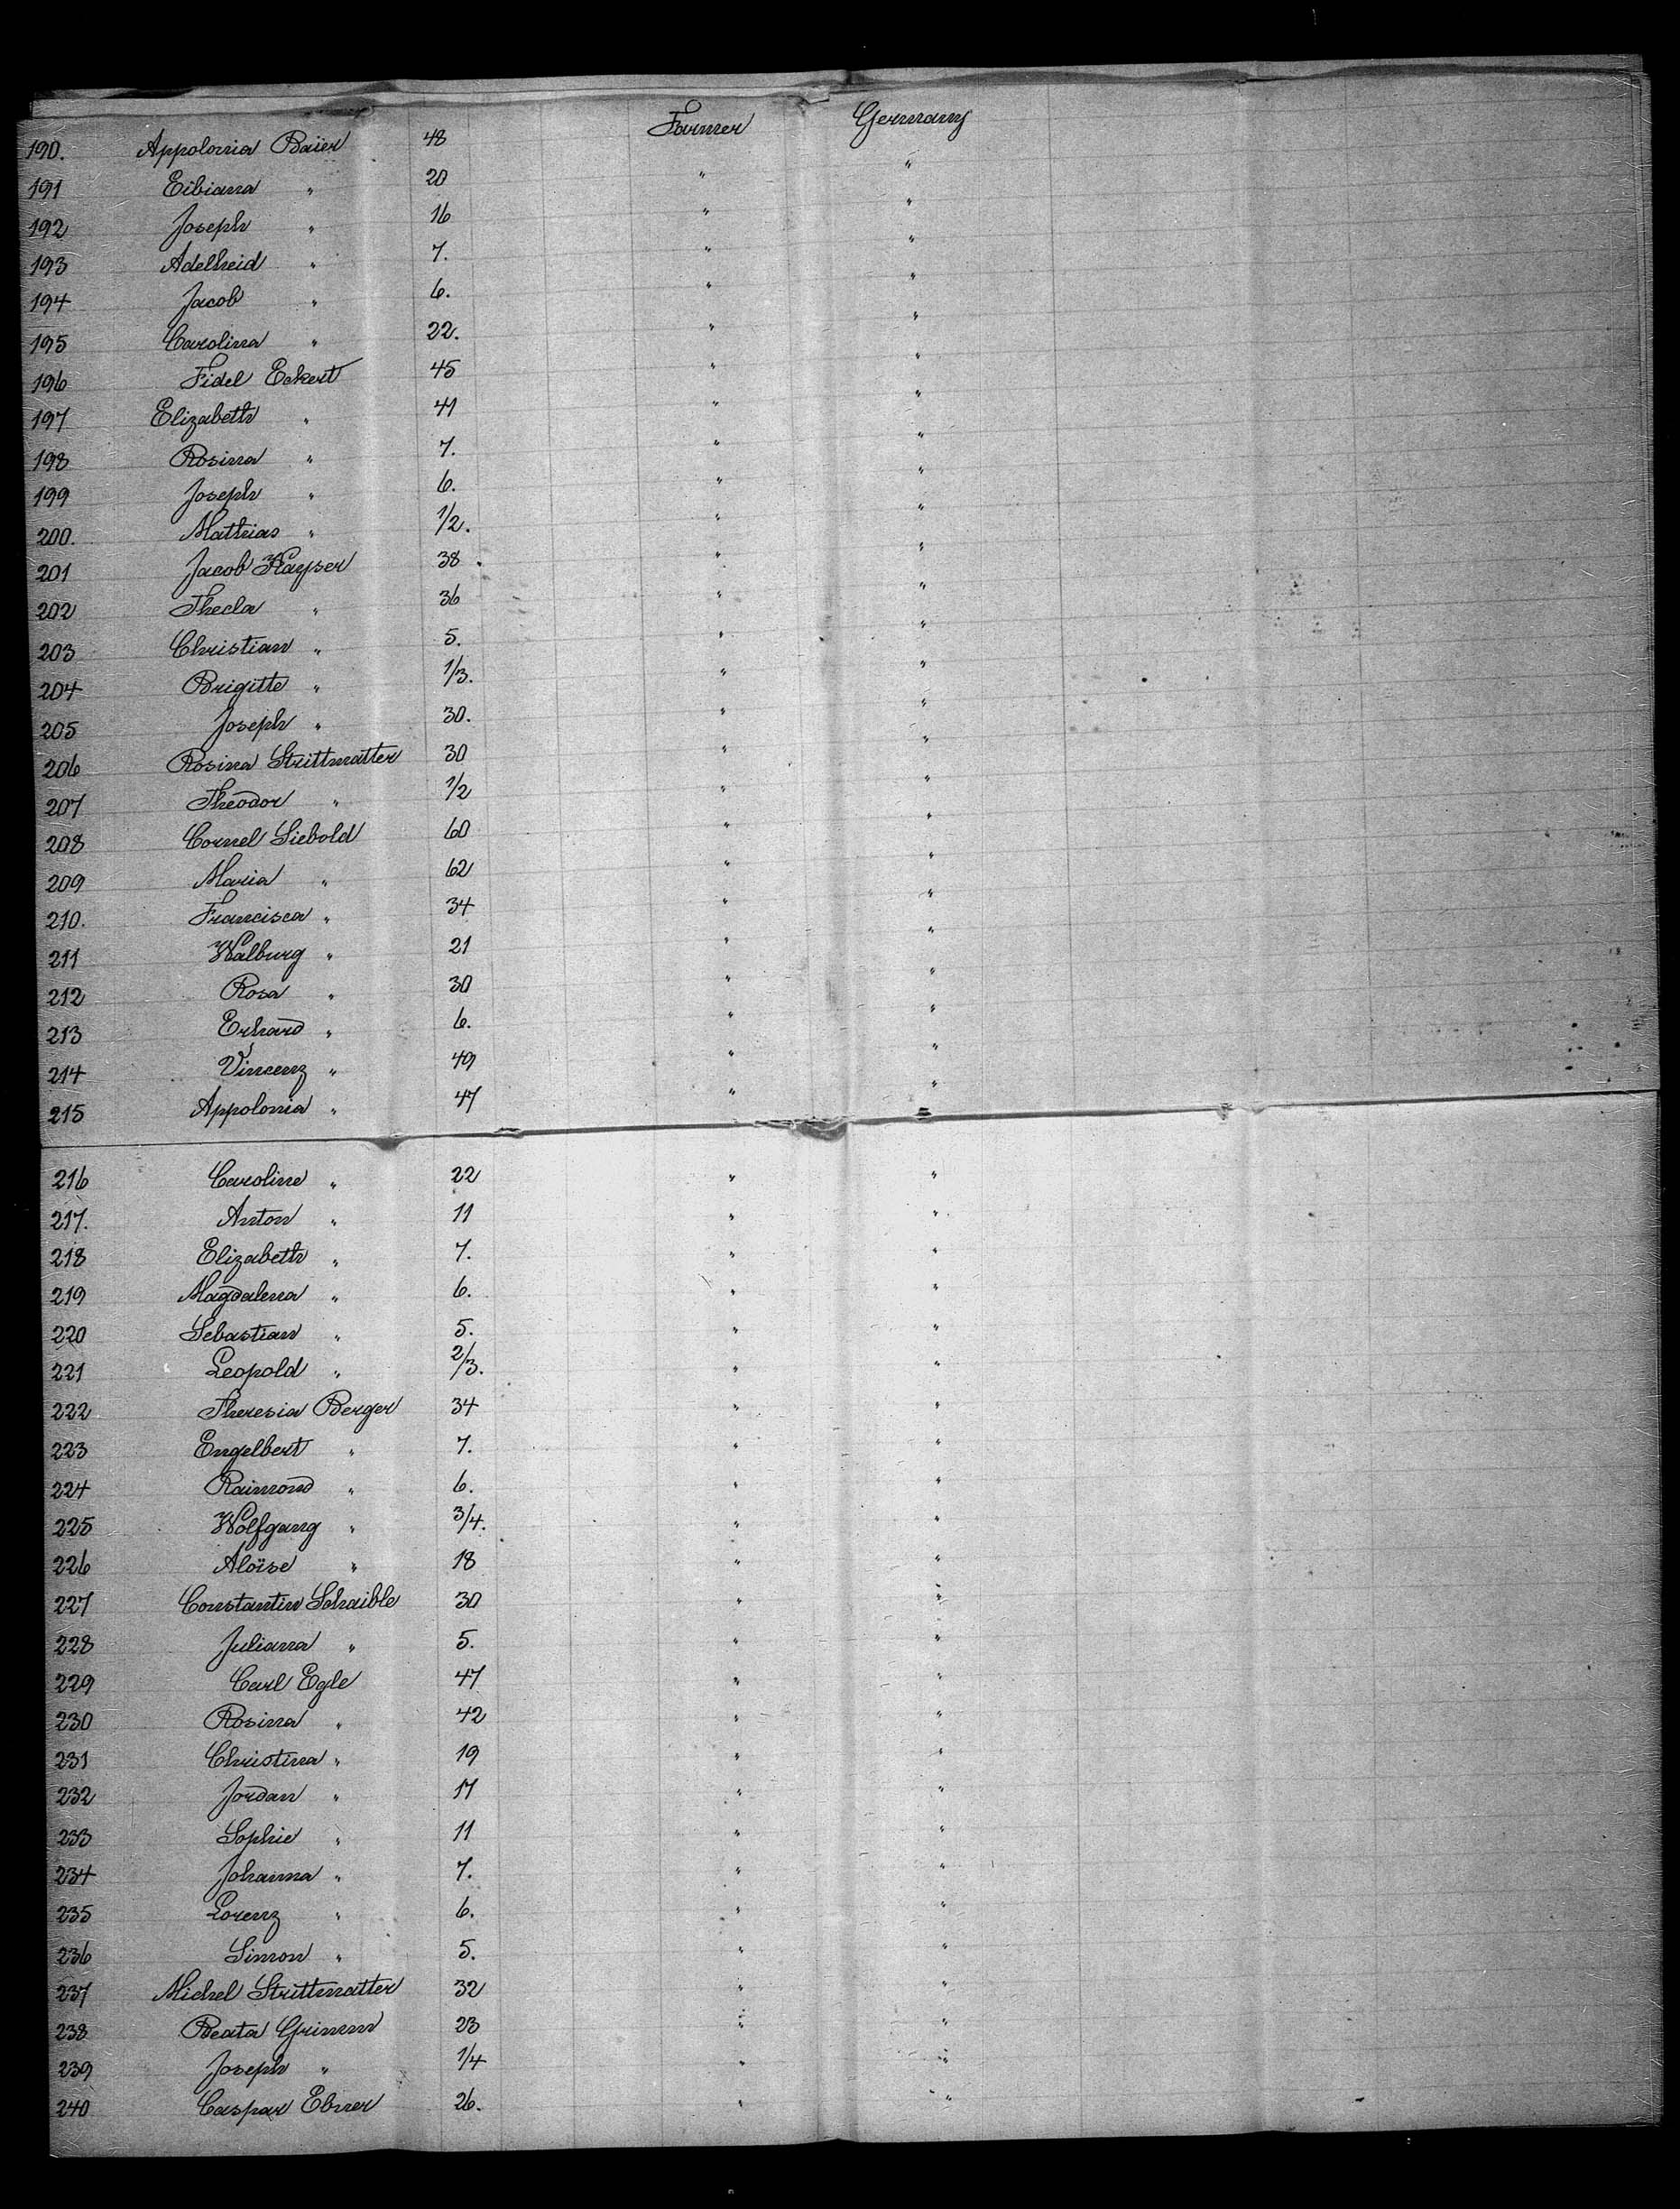 190. Appolonia Baier 48 Farmer Germany
191 Eibiana " 20 " "
192 Joseph " 16 " "
193 Adelheid " 7. " "
194 Jacob " 6. " "
195 Carolina " 22. " "
196 Fidel Eckert 45 " "
197 Elizabeth " 41 " "
198 Rosina " 7. " "
199 Joseph " 6. " "
200. Mathias " 1/2. " "
201 Jacob Kayser 38. " "
202 Thecla " 36 " "
203 Christian " 5. " "
204 Brigitte " 1/3. " "
205 Joseph " 30. " "
206 Rosina Strittmatter 30 " "
207 Theodor " 1/2 " "
208 Cornel Siebold 60 " "
209 Maria " 62 " "
210. Francisca " 34 " "
211 Walburg " 21 " "
212 Rosa " 30 " "
213 Erhard " 6. " "
214 Vincenz " 49 " "
215 Appolonia " 47 " "
216 Caroline " 22 " "
217. Anton " 11 " "
218 Elizabeth " 7. " "
219 Magdalena " 6. " "
220 Sebastian " 5. " "
221 Leopold " 2/3. " "
222 Theresia Berger 34 " "
223 Engelbert " 7. " "
224 Raimond " 6. " "
225 Wolfgang " 3/4. " "
226 Aloïse " 18 " "
227 Constantin Schaible 30 " "
228 Juliana " 5. " "
229 Carl Egle 47 " "
230 Rosina " 42 " "
231 Christina " 19 " "
232 Jordan " 17 " "
233 Sophie " 11 " "
234 Johanna " 7. " "
235 Lorenz " 6. " "
236 Simon " 5. " "
237 Michel Strittmatter 32 " "
238 Beata Grimm 23 " "
239 Joseph " 1/4 " "
240 Caspar Ebner 26. " "